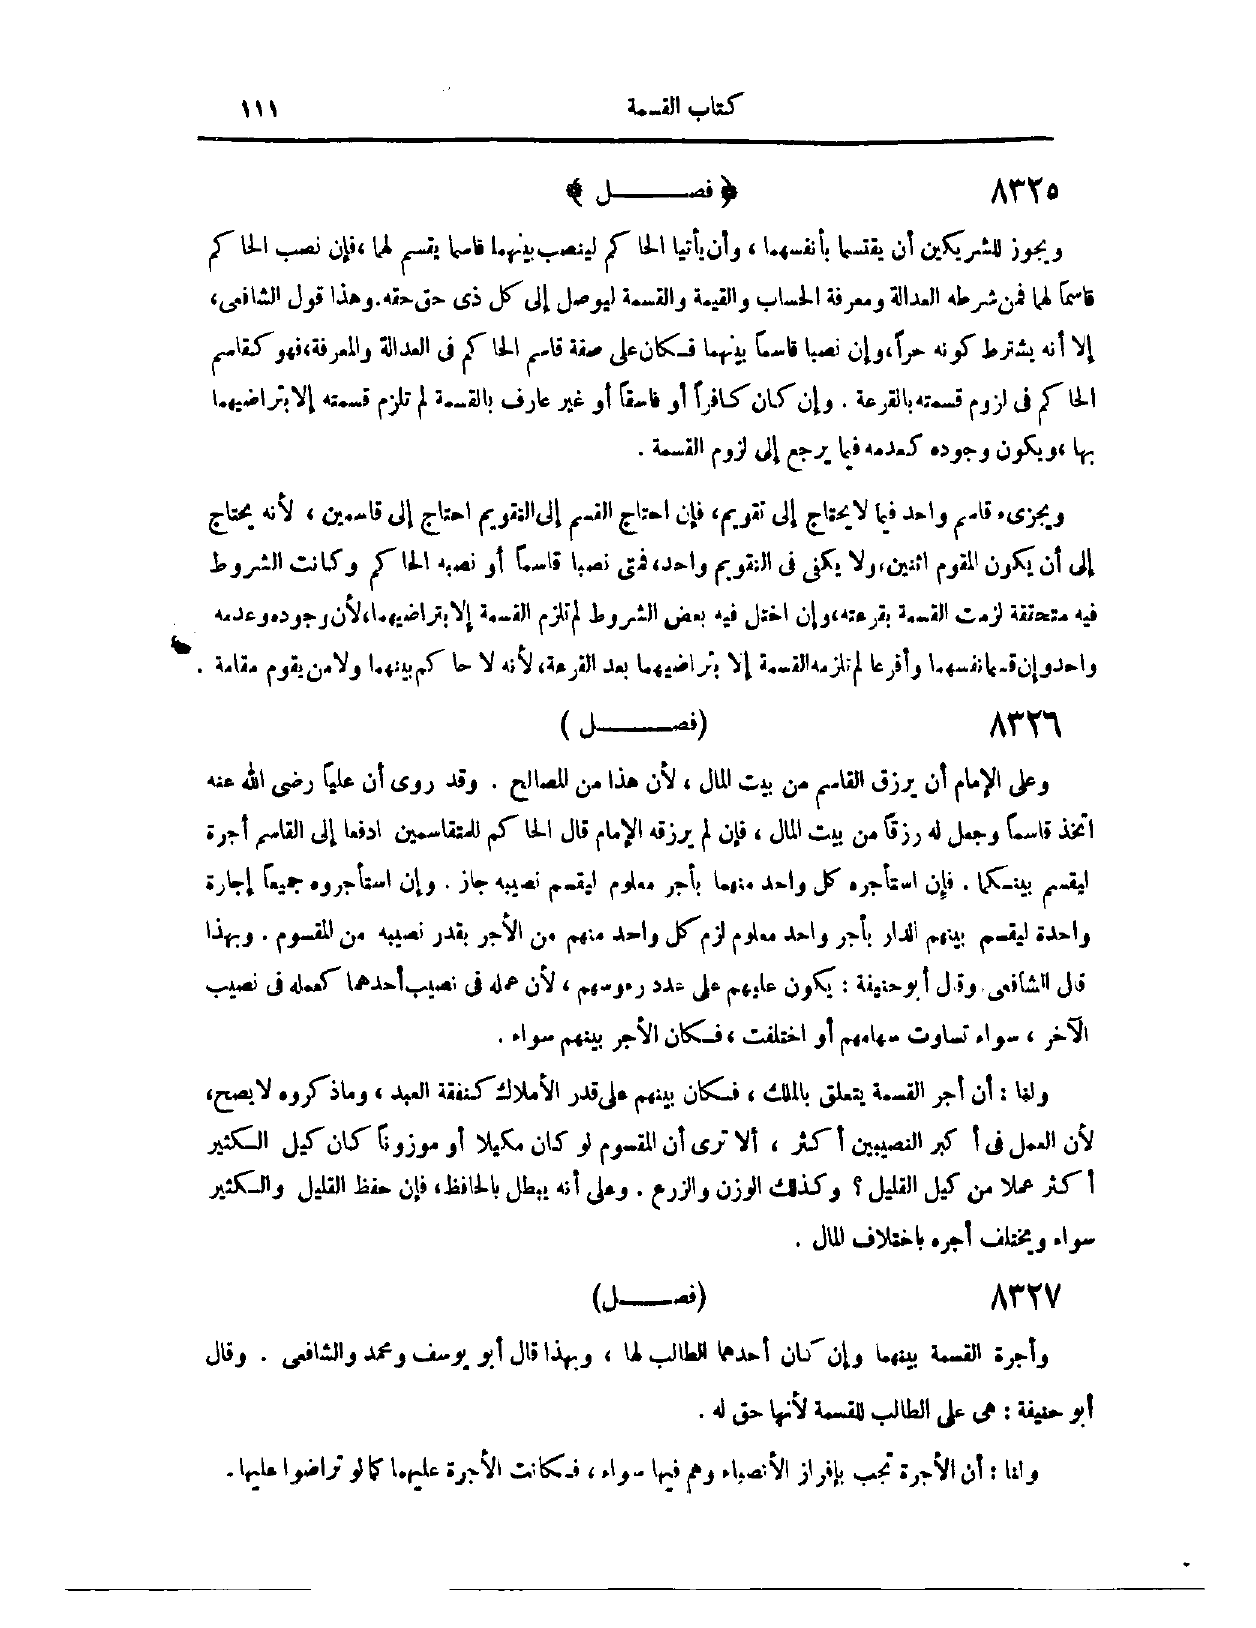 كتاب القسمة ١١١
٨٣٢٥ ﴿ فصــــل ﴾
ويجوز للشريكين أن يقتسما بأنفسهما ، وأن يأتيا الحاكم لينصب بينهما قاسما يقسم لهما ، فإن نصب الحاكم
قاسماً لهما فمن شرطه العدالة ومعرفة الحساب والقيمة والقسمة ليوصل إلى كل ذى حق حقه . وهذا قول الشافعى ،
إلا أنه يشترط كونه حراً ، وإن نصبا قاسماً بينهما فكان على صفة قاسم الحاكم فى العدالة والمعرفة ، فهو كقاسم
الحاكم فى لزوم قسمته بالقرعة . وإن كان كافراً أو فاسقاً أو غير عارف بالقسمة لم تلزم قسمته إلا بتراضيهما
بها ، ويكون وجوده كعدمه فيما يرجع إلى لزوم القسمة .
ويجزىء قاسم واحد فيما لا يحتاج إلى تقويم ، فإن احتاج القسم إلى التقويم احتاج إلى قاسمين ، لأنه يحتاج
إلى أن يكون المقوم اثنين ، ولا يكفى فى التقويم واحد ، فمتى نصبا قاسماً أو نصبه الحاكم وكانت الشروط
فيه متحققة لزمت القسمة بقرعته ، وإن اختل فيه بعض الشروط لم تلزم القسمة إلا بتراضيهما ، لأن وجوده وعدمه
واحد وإن قسما بأنفسهما وأقرعا لم تلزمه القسمة إلا بتراضيهما بعد القرعة ، لأنه لا حاكم بينهما ولا من يقوم مقامة .
٨٣٢٦ (فصــــل )
وعلى الإمام أن يرزق القاسم من بيت المال ، لأن هذا من المصالح . وقد روى أن علياً رضى الله عنه
اتخذ قاسماً وجعل له رزقاً من بيت المال ، فإن لم يرزقه الإمام قال الحاكم للمتقاسمين ادفعا إلى القاسم أجرة
ليقسم بينكما . فإن استأجره كل واحد منهما بأجر معلوم ليقسم نصيبه جاز . وإن استأجروه جميعاً إجارة
واحدة ليقسم بينهم الدار بأجر واحد معلوم لزم كل واحد منهم من الأجر بقدر نصيبه من المقسوم . وبهذا
قال الشافعى . وقال أبو حنيفة : يكون عليهم على عدد رءوسهم ، لأن عمله فى نصيب أحدهما كعمله فى نصيب
الآخر ، سواء تساوت سهامهم أو اختلفت ، فكان الأجر بينهم سواء .
ولنا : أن أجر القسمة يتعلق بالملك ، فكان بينهم على قدر الأملاك كنفقة العبد ، وماذكروه لا يصح ،
لأن العمل فى أكبر النصيبين أكثر ، ألا ترى أن المقسوم لو كان مكيلا أو موزوناً كان كيل الكثير
أكثر عملا من كيل القليل ؟ وكذلك الوزن والزرع . وعلى أنه يبطل بالحافظ ، فإن حفظ القليل والكثير
سواء ويختلف أجره باختلاف المال .
٨٣٢٧ (فصــــل)
وأجرة القسمة بينهما وإن كان أحدهما الطالب لها ، وبهذا قال أبو يوسف ومحمد والشافعى . وقال
أبو حنيفة : هى على الطالب للقسمة لأنها حق له .
ولنا : أن الأجرة تجب بإفراز الأنصباء وهم فيها سواء ، فكانت الأجرة عليهما كما لو تراضوا عليها .